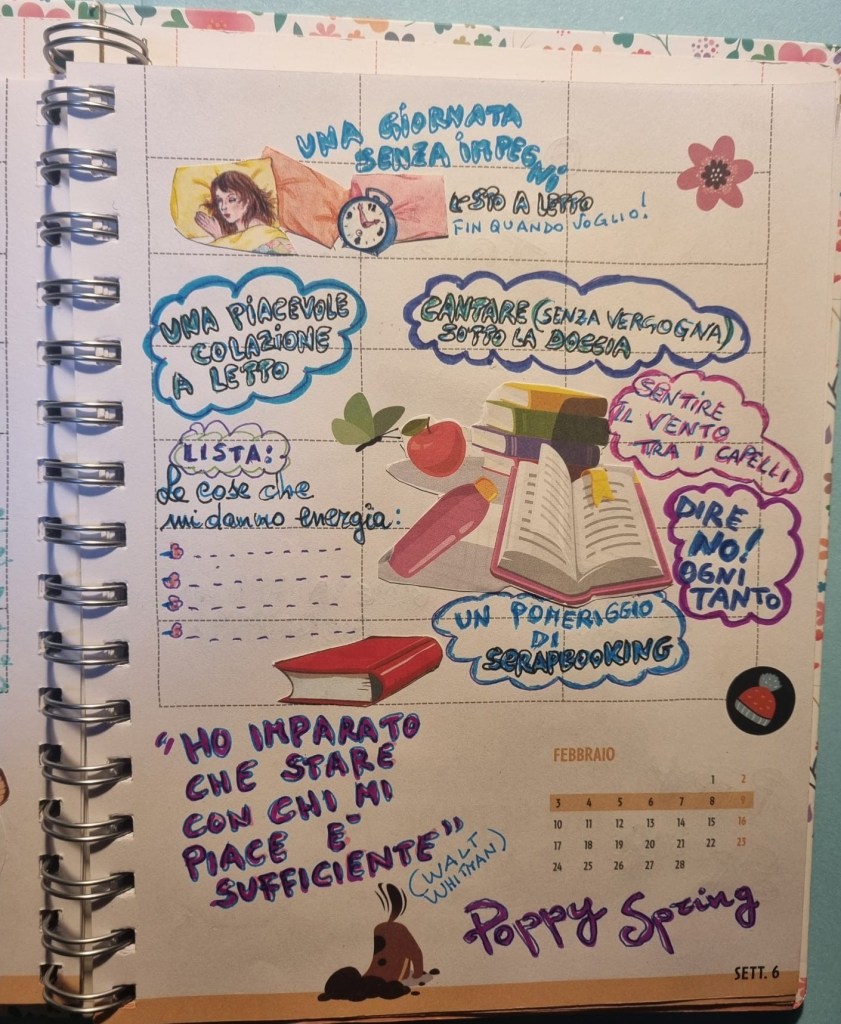 UNA GIORNATA
SENZA IMPEGNI
STO A LETTO
FIN QUANDO VOGLIO!
UNA PIACEVOLE
COLAZIONE
A LETTO
CANTARE (SENZA VERGOGNA)
SOTTO LA DOCCIA
SENTIRE
IL VENTO
TRA I CAPELLI
LISTA:
Le cose che
mi danno energia:
DIRE
NO!
OGNI
TANTO
UN POMERIGGIO
DI
SCRAPBOOKING
"HO IMPARATO
CHE STARE
CON CHI MI
PIACE E'
SUFFICIENTE"
(WALT
WHITMAN)
FEBBRAIO
1 2
3 4 5 6 7 8 9
10 11 12 13 14 15 16
17 18 19 20 21 22 23
24 25 26 27 28
Poppy Spring
SETT. 6